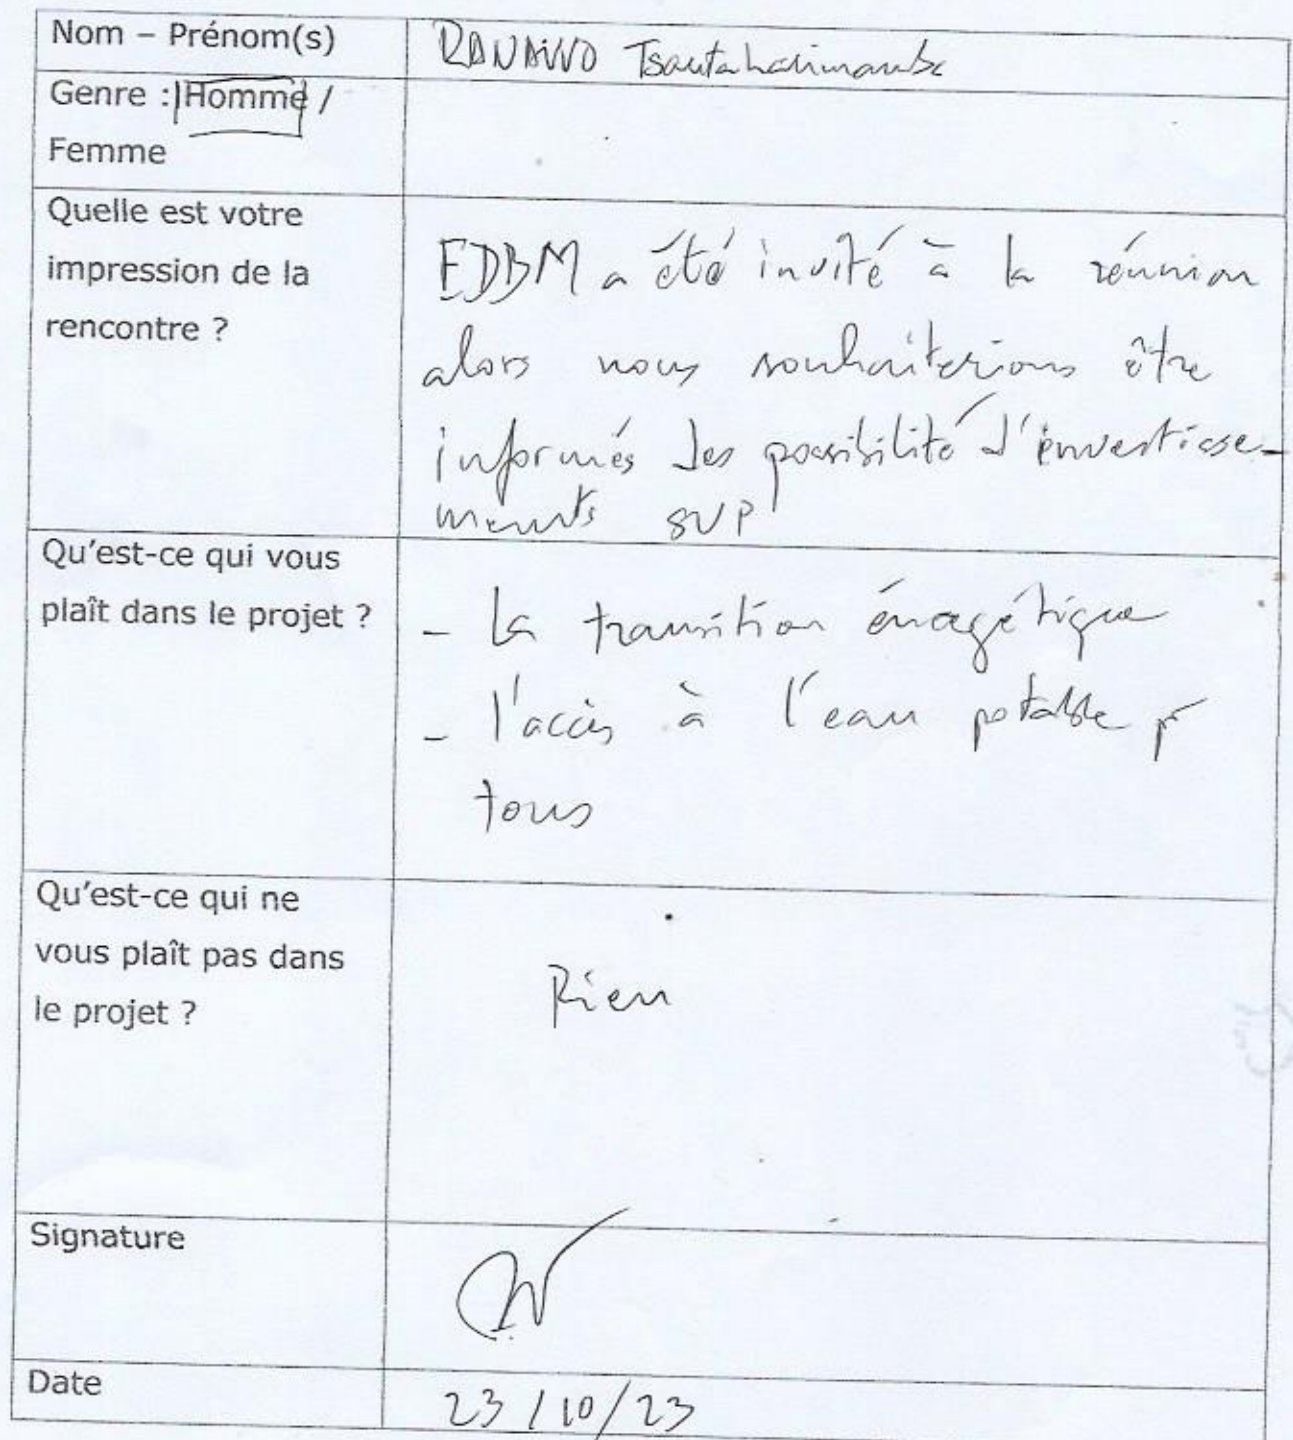 Nom – Prénom(s)
RANAIVO
Genre : Homme /
Femme
Quelle est votre
impression de la
rencontre ?
EDBM a été invité à la réunion
alors nous souhaiterions être
informés des possibilité d'investisse-
ments SVP
Qu'est-ce qui vous
plaît dans le projet ?
- La transition énergétique
- l'accès à l'eau potable pr
tous
Qu'est-ce qui ne
vous plaît pas dans
le projet ?
Rien
Signature
Date
23/10/23